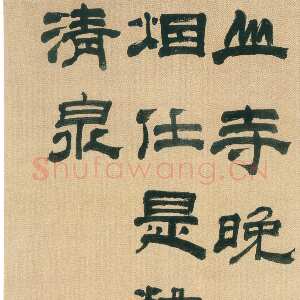 山寺晚
烟任是
清泉
Shufawang.CN